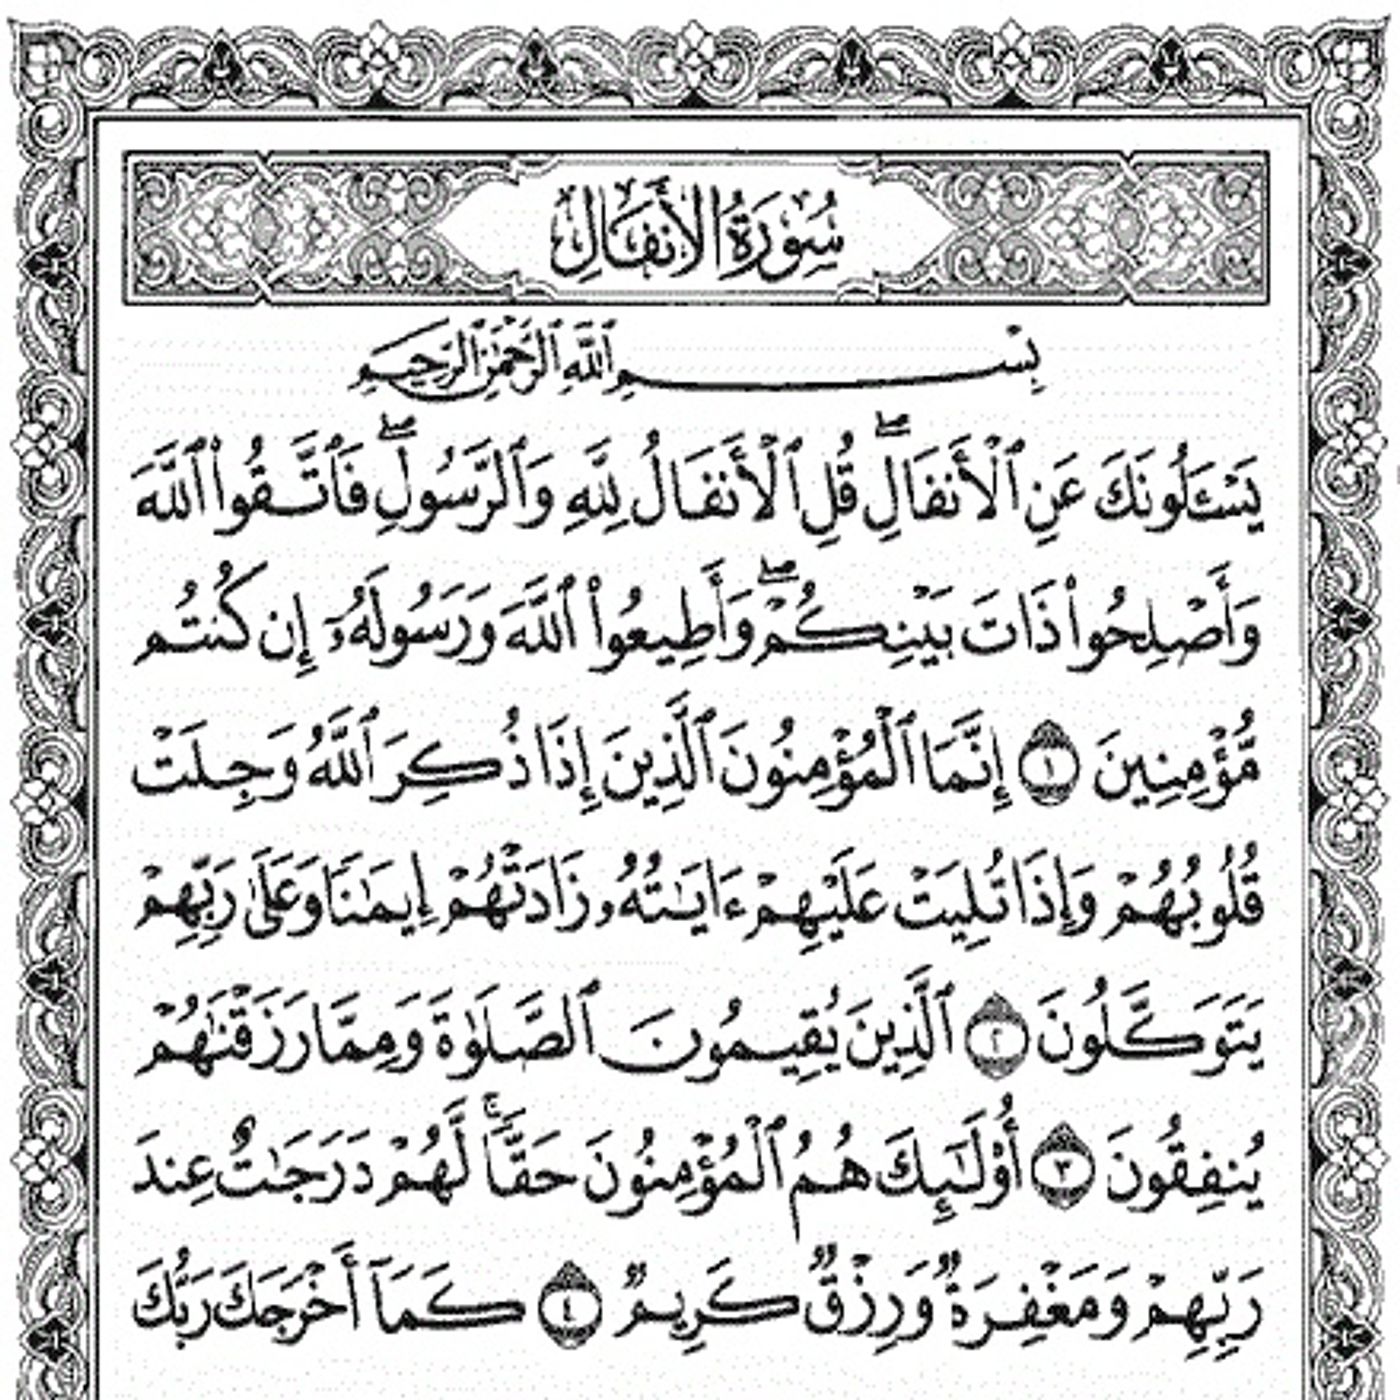 سُورَةُ الأَنفَالِ
بِسْمِ ٱللَّهِ ٱلرَّحْمَٰنِ ٱلرَّحِيمِ
يَسْـَٔلُونَكَ عَنِ ٱلْأَنفَالِۖ قُلِ ٱلْأَنفَالُ لِلَّهِ وَٱلرَّسُولِۖ فَٱتَّقُوا۟ ٱللَّهَ
وَأَصْلِحُوا۟ ذَاتَ بَيْنِكُمْۖ وَأَطِيعُوا۟ ٱللَّهَ وَرَسُولَهُۥٓ إِن كُنتُم
مُّؤْمِنِينَ ١ إِنَّمَا ٱلْمُؤْمِنُونَ ٱلَّذِينَ إِذَا ذُكِرَ ٱللَّهُ وَجِلَتْ
قُلُوبُهُمْ وَإِذَا تُلِيَتْ عَلَيْهِمْ ءَايَٰتُهُۥ زَادَتْهُمْ إِيمَٰنًا وَعَلَىٰ رَبِّهِمْ
يَتَوَكَّلُونَ ٢ ٱلَّذِينَ يُقِيمُونَ ٱلصَّلَوٰةَ وَمِمَّا رَزَقْنَٰهُمْ
يُنفِقُونَ ٣ أُو۟لَٰٓئِكَ هُمُ ٱلْمُؤْمِنُونَ حَقًّاۚ لَّهُمْ دَرَجَٰتٌ عِندَ
رَبِّهِمْ وَمَغْفِرَةٌ وَرِزْقٌ كَرِيمٌ ٤ كَمَآ أَخْرَجَكَ رَبُّكَ